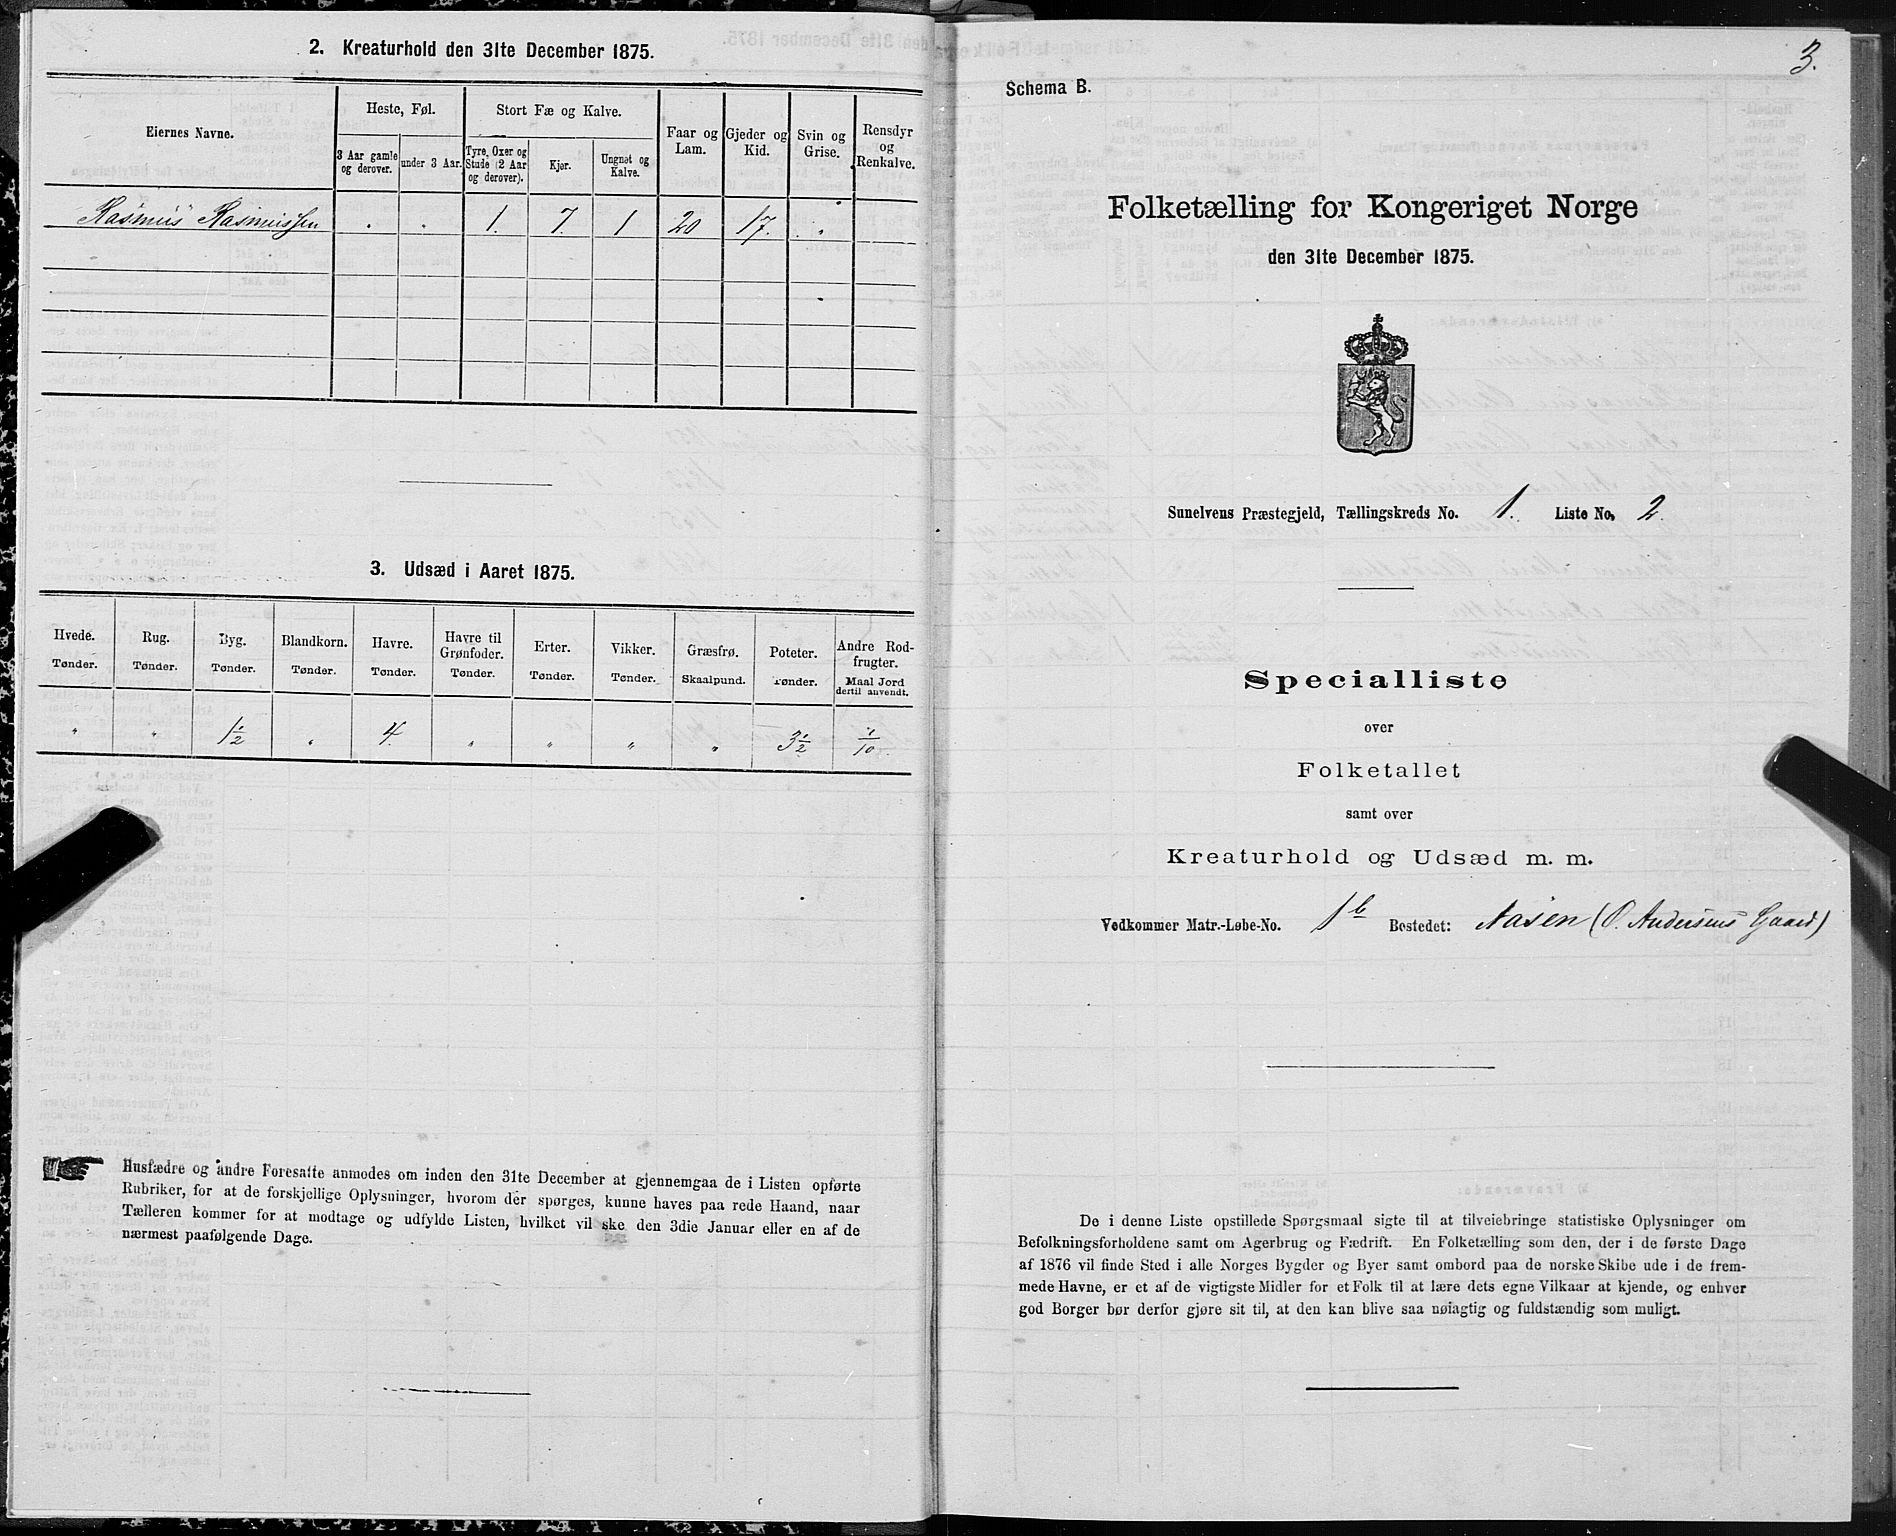 2. Kreaturhold den 31te December 1875.
Eiernes Navne.
Heste, Føl.
3 Aar gamle og derover.
under 3 Aar.
Stort Fæ og Kalve.
Tyre, Oxer og Stude (2 Aar og derover).
Kjør.
Ungnøt og Kalve.
Faar og Lam.
Gjeder og Kid.
Svin og Grise.
Rensdyr og Renkalve.
Rasmus Rasmussen " " 1. 7. 1 20 17. "
3. Udsæd i Aaret 1875.
Hvede. Rug. Byg. Blandkorn. Havre. Havre til Grønfoder. Erter. Vikker. Græsfrø. Poteter. Andre Rodfrugter.
Tønder. Tønder. Tønder. Tønder. Tønder. Tønder. Tønder. Tønder. Skaalpund. Tønder. Maal Jord dertil anvendt.
" " 1½ " 4. " " " " 3½ 1/10
Husfædre og andre Foresatte anmodes om inden den 31te December at gjennemgaa de i Listen opførte
Rubriker, for at de forskjellige Oplysninger, hvorom der spørges, kunne haves paa rede Haand, naar
Tælleren kommer for at modtage og udfylde Listen, hvilket vil ske den 3die Januar eller en af de
nærmest paafølgende Dage.
3.
Schema B.
Folketælling for Kongeriget Norge
den 31te December 1875.
Sunelvens Præstegjeld, Tællingskreds No. 1. Liste No. 2.
Specialliste
over
Folketallet
samt over
Kreaturhold og Udsæd m. m.
Vedkommer Matr.-Løbe-No. 1b Bostedet: Aasen (O. Andersens Gaard)
De i denne Liste opstillede Spørgsmaal sigte til at tilveiebringe statistiske Oplysninger om
Befolkningsforholdene samt om Agerbrug og Fædrift. En Folketælling som den, der i de første Dage
af 1876 vil finde Sted i alle Norges Bygder og Byer samt ombord paa de norske Skibe ude i de frem-
mede Havne, er et af de vigtigste Midler for et Folk til at lære dets egne Vilkaar at kjende, og enhver
god Borger bør derfor gjøre sit til, at den kan blive saa nøiagtig og fuldstændig som muligt.